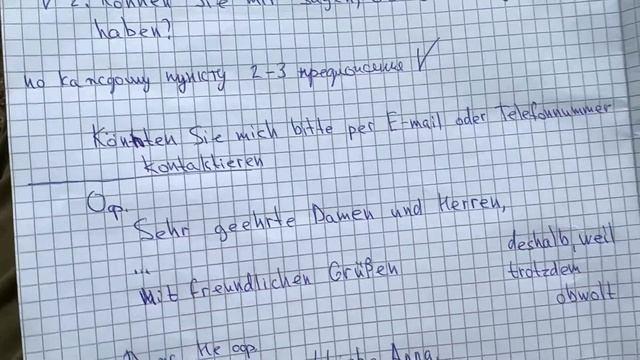 2. Können Sie mir sagen,
haben?
по каждому пункту 2-3 предложение V
Könnten Sie mich bitte per E-mail oder Telefonnummer
kontaktieren
Оф.
Sehr geehrte Damen und Herren,
...
Mit freundlichen Grüßen
deshalb, weil
trotzdem
obwolt
Не оф.
Anna,